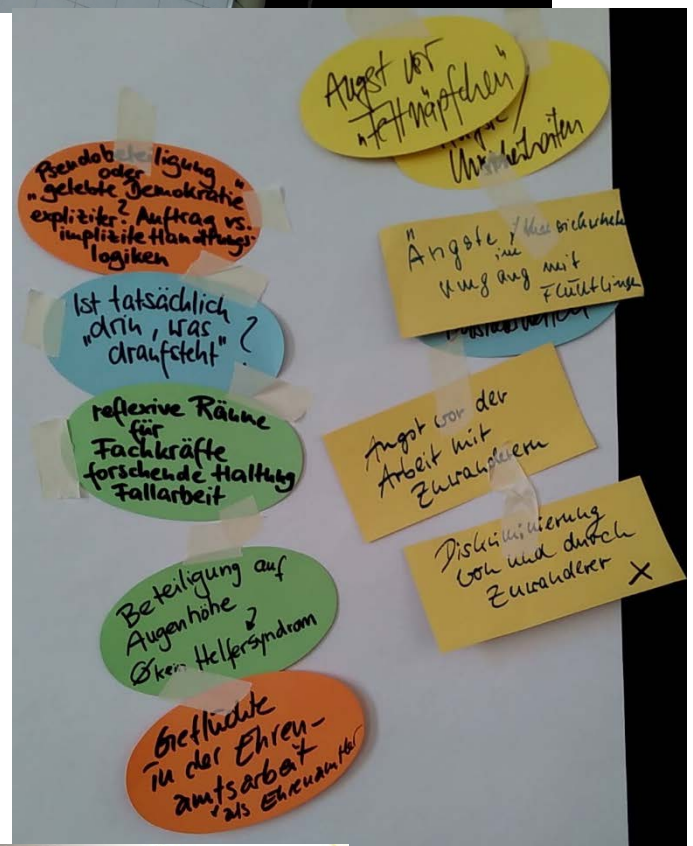 Pseudobeteiligung
oder
"gelebte Demokratie"
expliziter? Auftrag vs.
implizite Handlungs-
logiken
Ist tatsächlich
"drin, was
draufsteht" ?
reflexive Räume
für
Fachkräfte
forschende Haltung
Fallarbeit
Beteiligung auf
Augenhöhe ?
kein Helfersyndrom
Geflüchte
in der Ehren-
amtsarbeit
als Ehrenamtler
Angst vor
"Fettnäpfchen"
Unsicherheiten
Ängste
im
Umgang mit
Flüchtlingen
Angst vor der
Arbeit mit
Zuwanderern
Diskriminierung
von und durch
Zuwanderer X